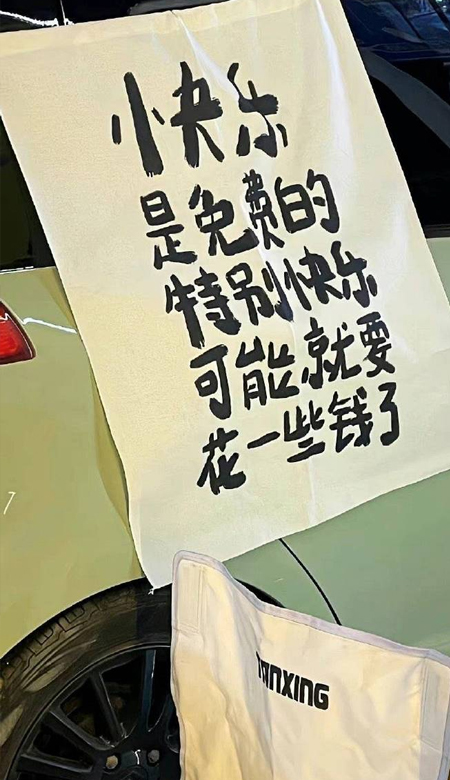 快乐
是免费的
特别快乐
可能就要
花一些钱了